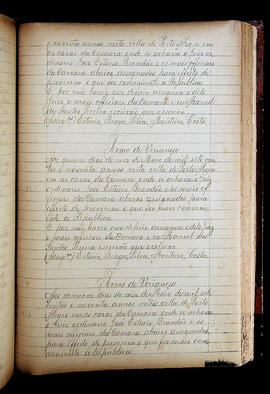 e noventa annos nesta villa de Porto Alegre em
as cazas da Camara onde se achava o Juiz or-
dinario José Estacio Brandão e os mais officiaes
da Camara abaixo assignados para effeito de
proverem o que for conveniente a Republica.
E por não haver que deferir assignou o dito
Juiz e mais officiaes da Camara e eu Manoel
dos Santos escrivão que escrevi.
Estacio, Braga, Silva, Monteiro, Costa.
Termo de Vriança
Aos quinze dias do mez de Maio de mil sete cen-
tos e noventa annos nesta villa de Porto Alegre
em as cazas da Camara onde se achava o Juiz
ordinario José Estacio Brandão e os mais of-
ficiaes da Camara abaixo assignados para
effeito de proverem o que for mais conveni-
ente a Republica.
E por não haver que deferir assignou o Juiz
e mais officiaes da Camara e eu Manoel dos
Santos escrivão que escrevi
Estacio, Braga, Silva, Monteiro, Costa.
Termo de Vriança
Aos dezenove dias do mez de Maio de mil sete
centos e noventa annos nesta villa de Porto
Alegre em as cazas da Camara onde se achava
o Juiz ordinario José Estacio Brandão e os
mais officiaes da Camara abaixo assignados,
para effeito de proverem o que for mais con-
veniente a Republica.